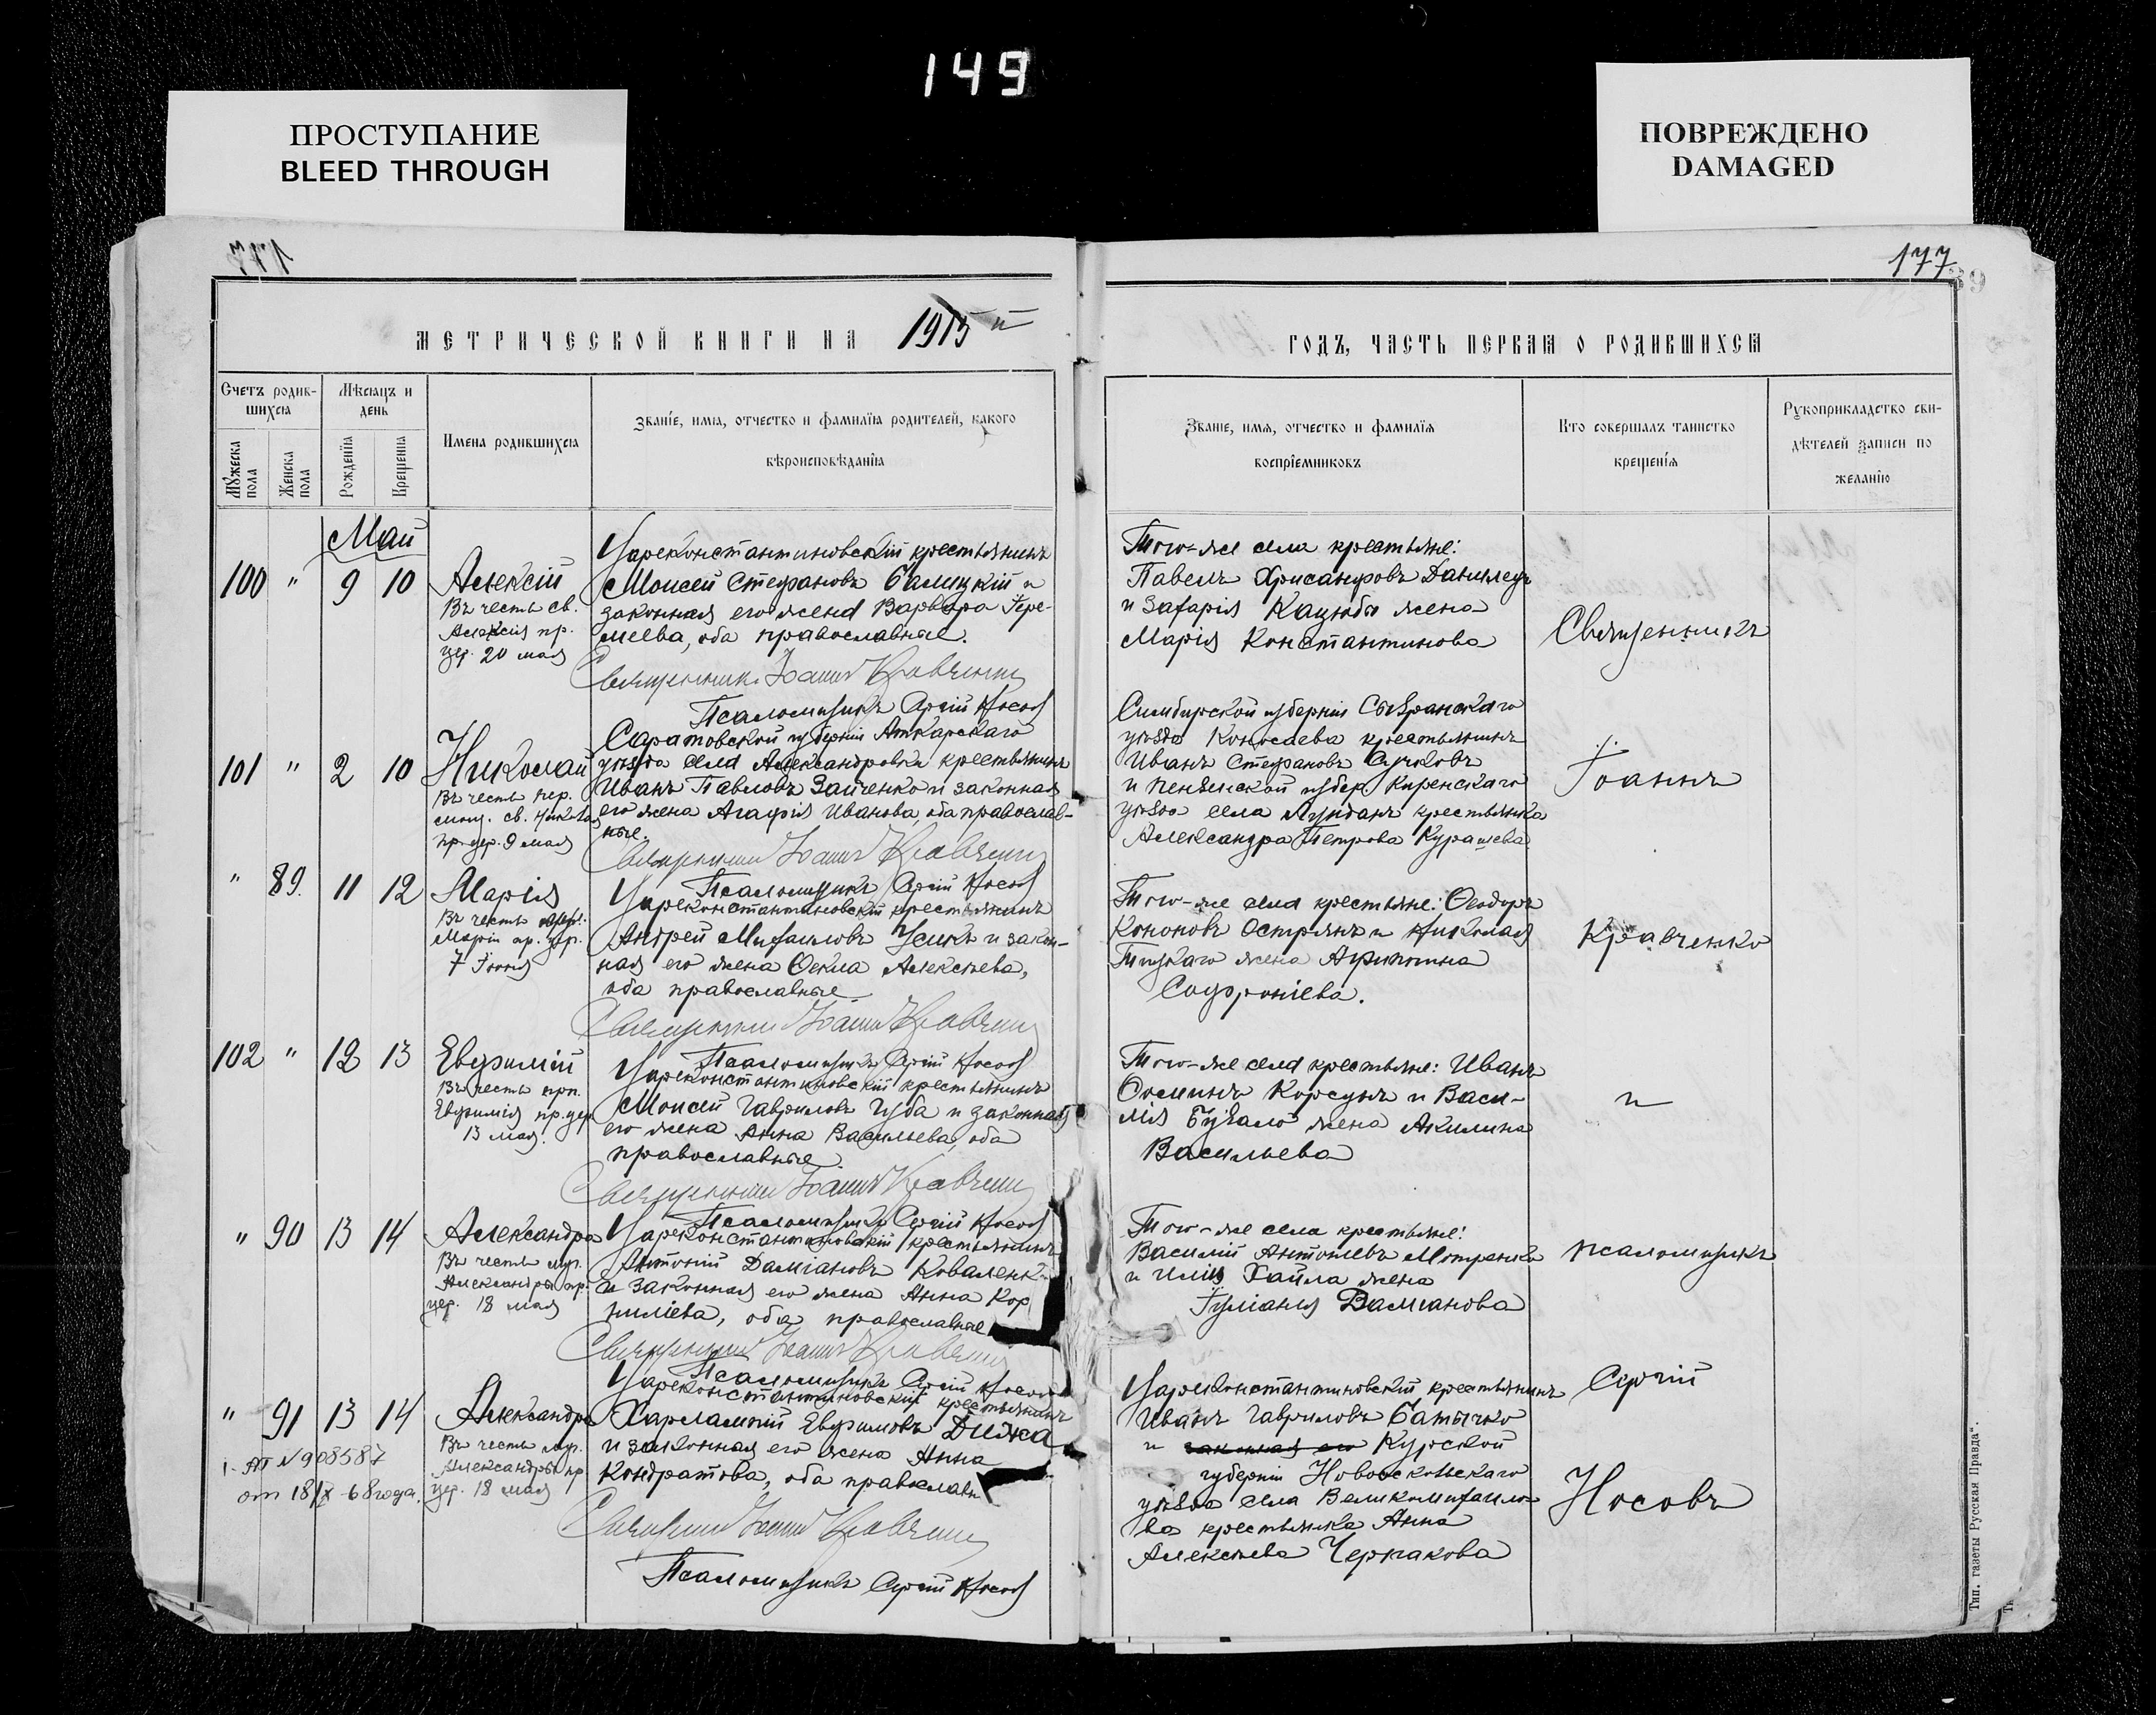 149
ПРОСТУПАНИЕ
BLEED THROUGH
ПОВРЕЖДЕНО
DAMAGED
177
МЕТРИЧЕСКОЙ КНИГИ НА 1915
Счетъ родив-
шихся
Мѣсяцъ и
день
Мужеска
пола
Женска
пола
Рожденїя
Крещенїя
Имена родившихся
Званїе, имя, отчество и фамилїя родителей, какого
вѣроисповѣданїя
Май
100 " 9 10
Алексій
Въ честь св.
Алексія пр.
цер. 20 мая
Цареконстантиновскій крестьянинъ
Моисей Стефановъ Балицкій и
законная его жена Варвара Іере-
міева, оба православные.
Священникъ Іоаннъ Кравченко
Псаломщикъ Сергій Носовъ
101 " 2 10
Николай
Въ честь пер.
мощ. св. Николая
пр. цер. 9 мая
Саратовской губерніи Аткарскаго
уѣзда села Александровки крестьянинъ
Иванъ Павловъ Зайченко и законная
его жена Агафія Иванова, оба православ-
ные.
Священникъ Іоаннъ Кравченко
Псаломщикъ Сергій Носовъ
" 89. 11 12
Марія
Въ честь
Маріи пр. цер.
7 Іюня
Цареконстантиновскій крестьянинъ
Андрей Михаиловъ Усикъ и закон-
ная его жена Ѳекла Алексѣева,
оба православные
Священникъ Іоаннъ Кравченко
Псаломщикъ Сергій Носовъ
102 " 12 13
Евфимій
Въ честь прп.
Евфимія пр. цер.
13 мая.
Цареконстантиновскій крестьянинъ
Моисей Гавриловъ Губа и законная
его жена Анна Васильева, оба
православные.
Священникъ Іоаннъ Кравченко
Псаломщикъ Сергій Носовъ
" 90 13 14
Александра
Въ честь муч.
Александры пр.
цер. 18 мая
Цареконстантиновскій крестьянинъ
Антоній Даміановъ Коваленк
и законная его жена Анна Кор
ниліева, оба православные
Священникъ Іоаннъ Кравченко
Псаломщикъ Сергій Носовъ
" 91 13 14
Александра
Въ честь муч.
Александры пр.
цер. 18 мая
I-АП № 908587
от 18/X-68 года.
Цареконстантиновскій крестьянинъ
Харлампій Евфимовъ Дижа
и законная его жена Анна
Кондратова, оба православн
Священникъ Іоаннъ Кравченко
Псаломщикъ Сергій Носовъ
177
39
ГОДЪ, ЧАСТЬ ПЕРВАЯ О РОДИВШИХСЯ
Званїе, имя, отчество и фамилїя
воспрїемниковъ
Кто совершалъ таинство
крещенїя
Рукоприкладство сви-
дѣтелей записи по
желанїю
Того-же села крестьяне:
Павелъ Хрисанфовъ Данилецъ
и Захарія Кацюбы жена
Марія Константинова
Симбирской губерніи Сызранскаго
уѣзда крестьянинъ
Иванъ Стефановъ Сучковъ
и Пензенской губер. Киренскаго
уѣзда села крестьянка
Александра Петрова Курашева
Того-же села крестьяне: Ѳеодоръ
Кононовъ Острянъ и Николая
жена Агрипина
Софроніева.
Того-же села крестьяне: Иванъ
Ѳоминъ Корсунъ и Васи-
лія Бузало жена Акилина
Васильева
Того-же села крестьяне:
Василій Антоніевъ Мотренко
и Иліи Хайла жена
Іуліанія Даміанова
Цареконстантиновскій крестьянинъ
Иванъ Гавриловъ Батычко
и законная его Курской
губерніи Новооскольскаго
уѣзда села Великомихаило-
ва крестьянка Анна
Алексѣева Черпакова
Священникъ
Іоаннъ
Кравченко
и
псаломщикъ
Сергій
Носовъ
Тип. газеты Русская Правда".